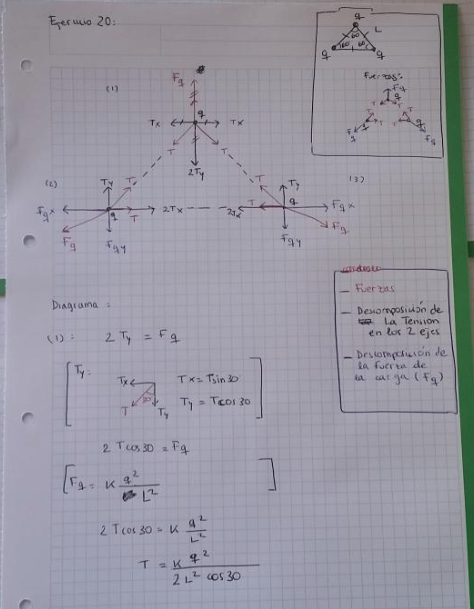 Ejercicio 20:
q
L
60
60 60
q q
Fuerzas:
Fq
q
T T
T T
T T
Fq Fq
(1)
Fq
q
Tx Tx
T T
2Ty
(2)
Ty T
Fqx q T 2Tx
Fq
Fqy
(3)
T Ty
2Tx T q Fqx
Fq
Fqy
— Fuerzas
— Descomposición de
La Tension
en los 2 ejes
— Descomposición de
la fuerza de
la carga (Fq)
Diagrama:
(1): 2 Ty = Fq
[Ty:
Tx 30 T Ty
Tx = T sin 30
Ty = T cos 30]
2 T cos 30 = Fq
[Fq = K q²/L²]
2 T cos 30 = K q²/L²
T = K q²/2L² cos 30